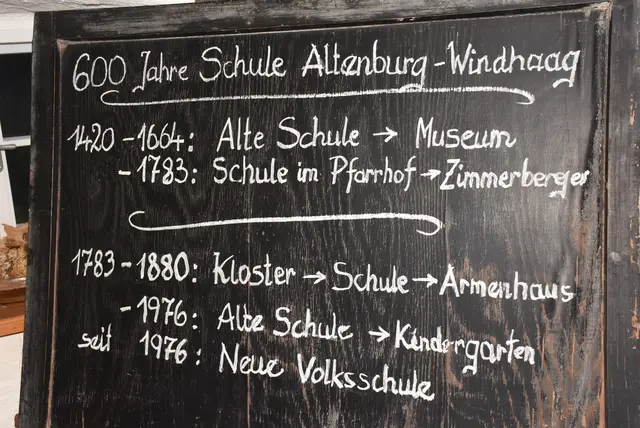 600 Jahre Schule Altenburg-Windhaag
1420-1664: Alte Schule → Museum
-1783: Schule im Pfarrhof → Zimmerberger
1783-1880: Kloster → Schule → Armenhaus
-1976: Alte Schule → Kindergarten
seit 1976: Neue Volksschule